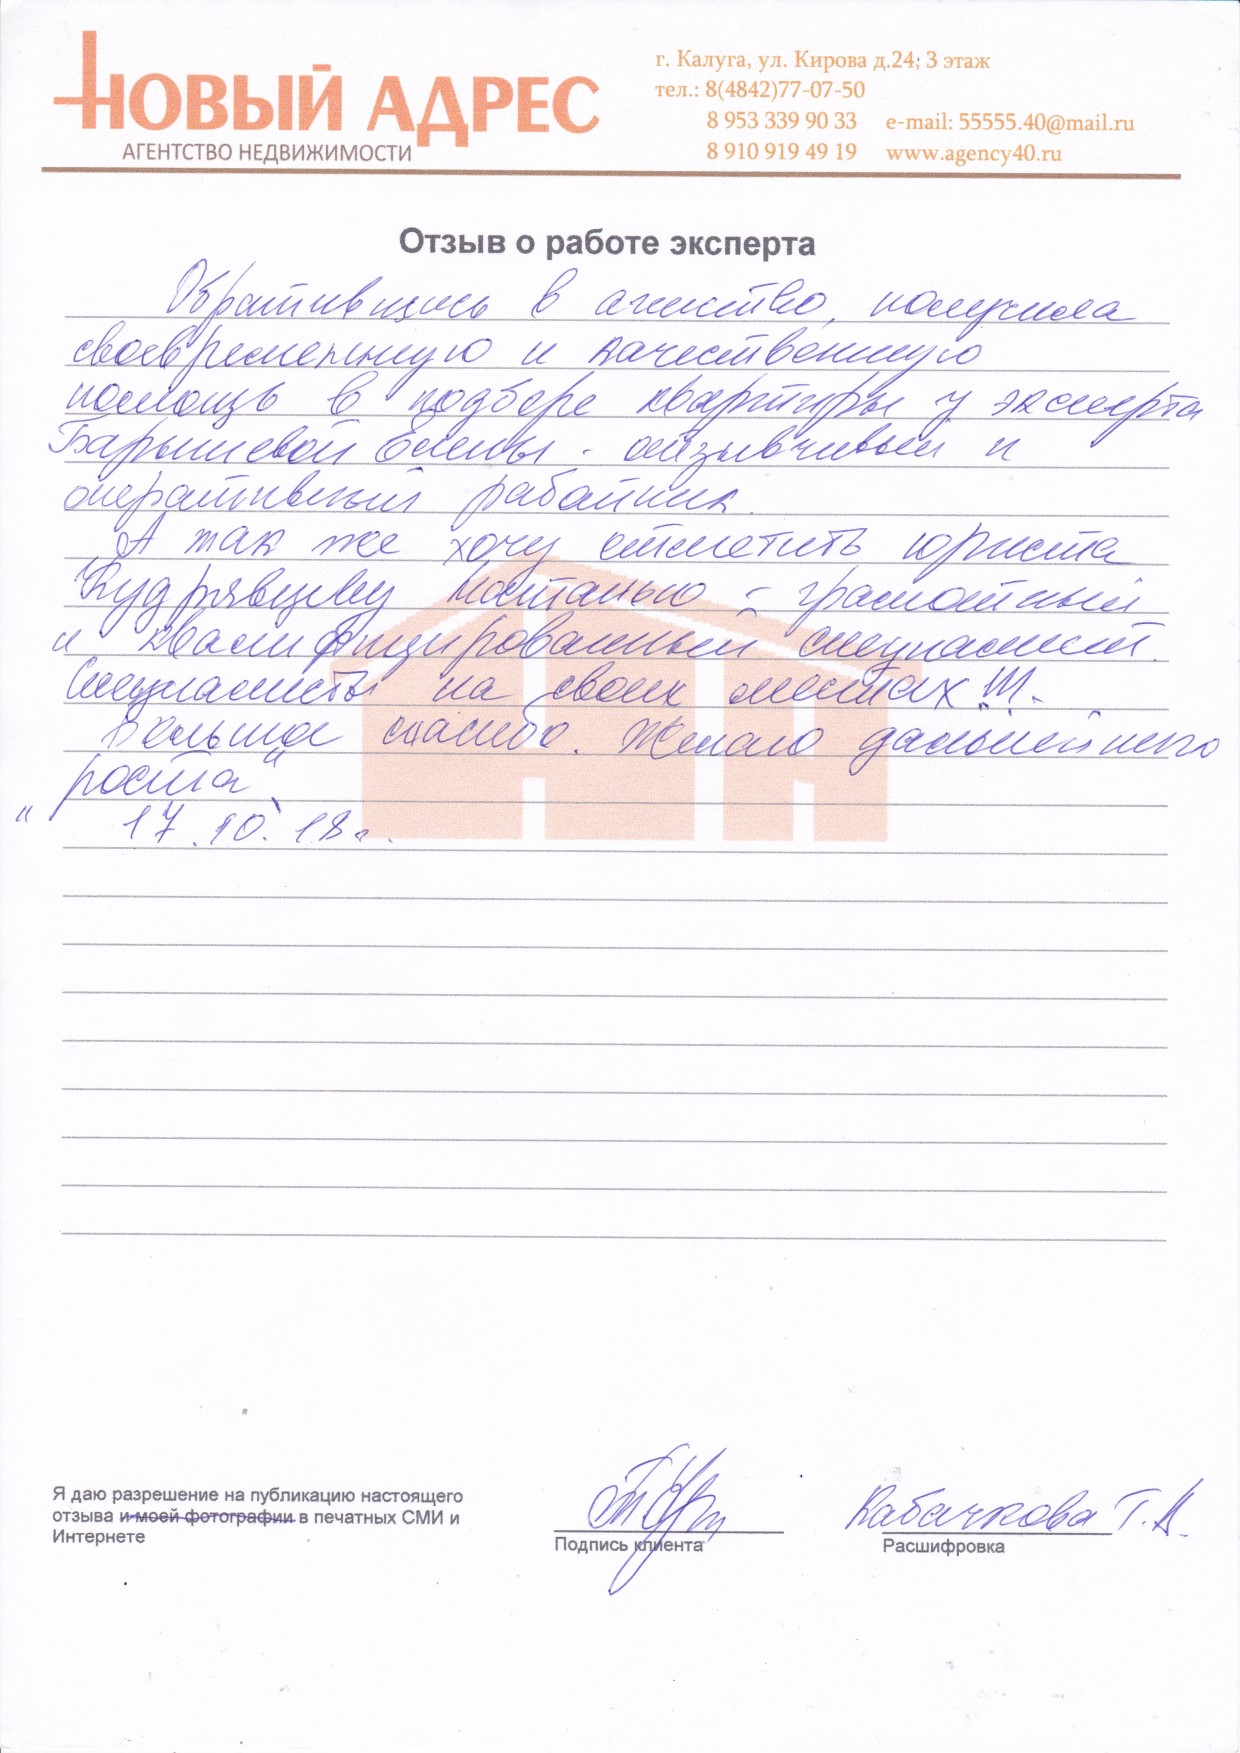 НОВЫЙ АДРЕС
АГЕНТСТВО НЕДВИЖИМОСТИ
г. Калуга, ул. Кирова д.24; 3 этаж
тел.: 8(4842)77-07-50
8 953 339 90 33 e-mail: 55555.40@mail.ru
8 910 919 49 19 www.agency40.ru
Отзыв о работе эксперта
Обратившись в агенство, получила
своевременную и качественную
помощь в подборе квартиры у эксперта
Барышевой Елены - отзывчивый и
оперативный работник.
А так же хочу отметить юриста
Кудрявцеву Наталью - грамотный
и квалифицированный специалист.
Специалисты на своих местах!!!
Большое спасибо. Желаю дальнейшего
роста
" 17 " 10. 18г.
Я даю разрешение на публикацию настоящего
отзыва и моей фотографии в печатных СМИ и
Интернете
Подпись клиента
Кабачкова Т.А.
Расшифровка